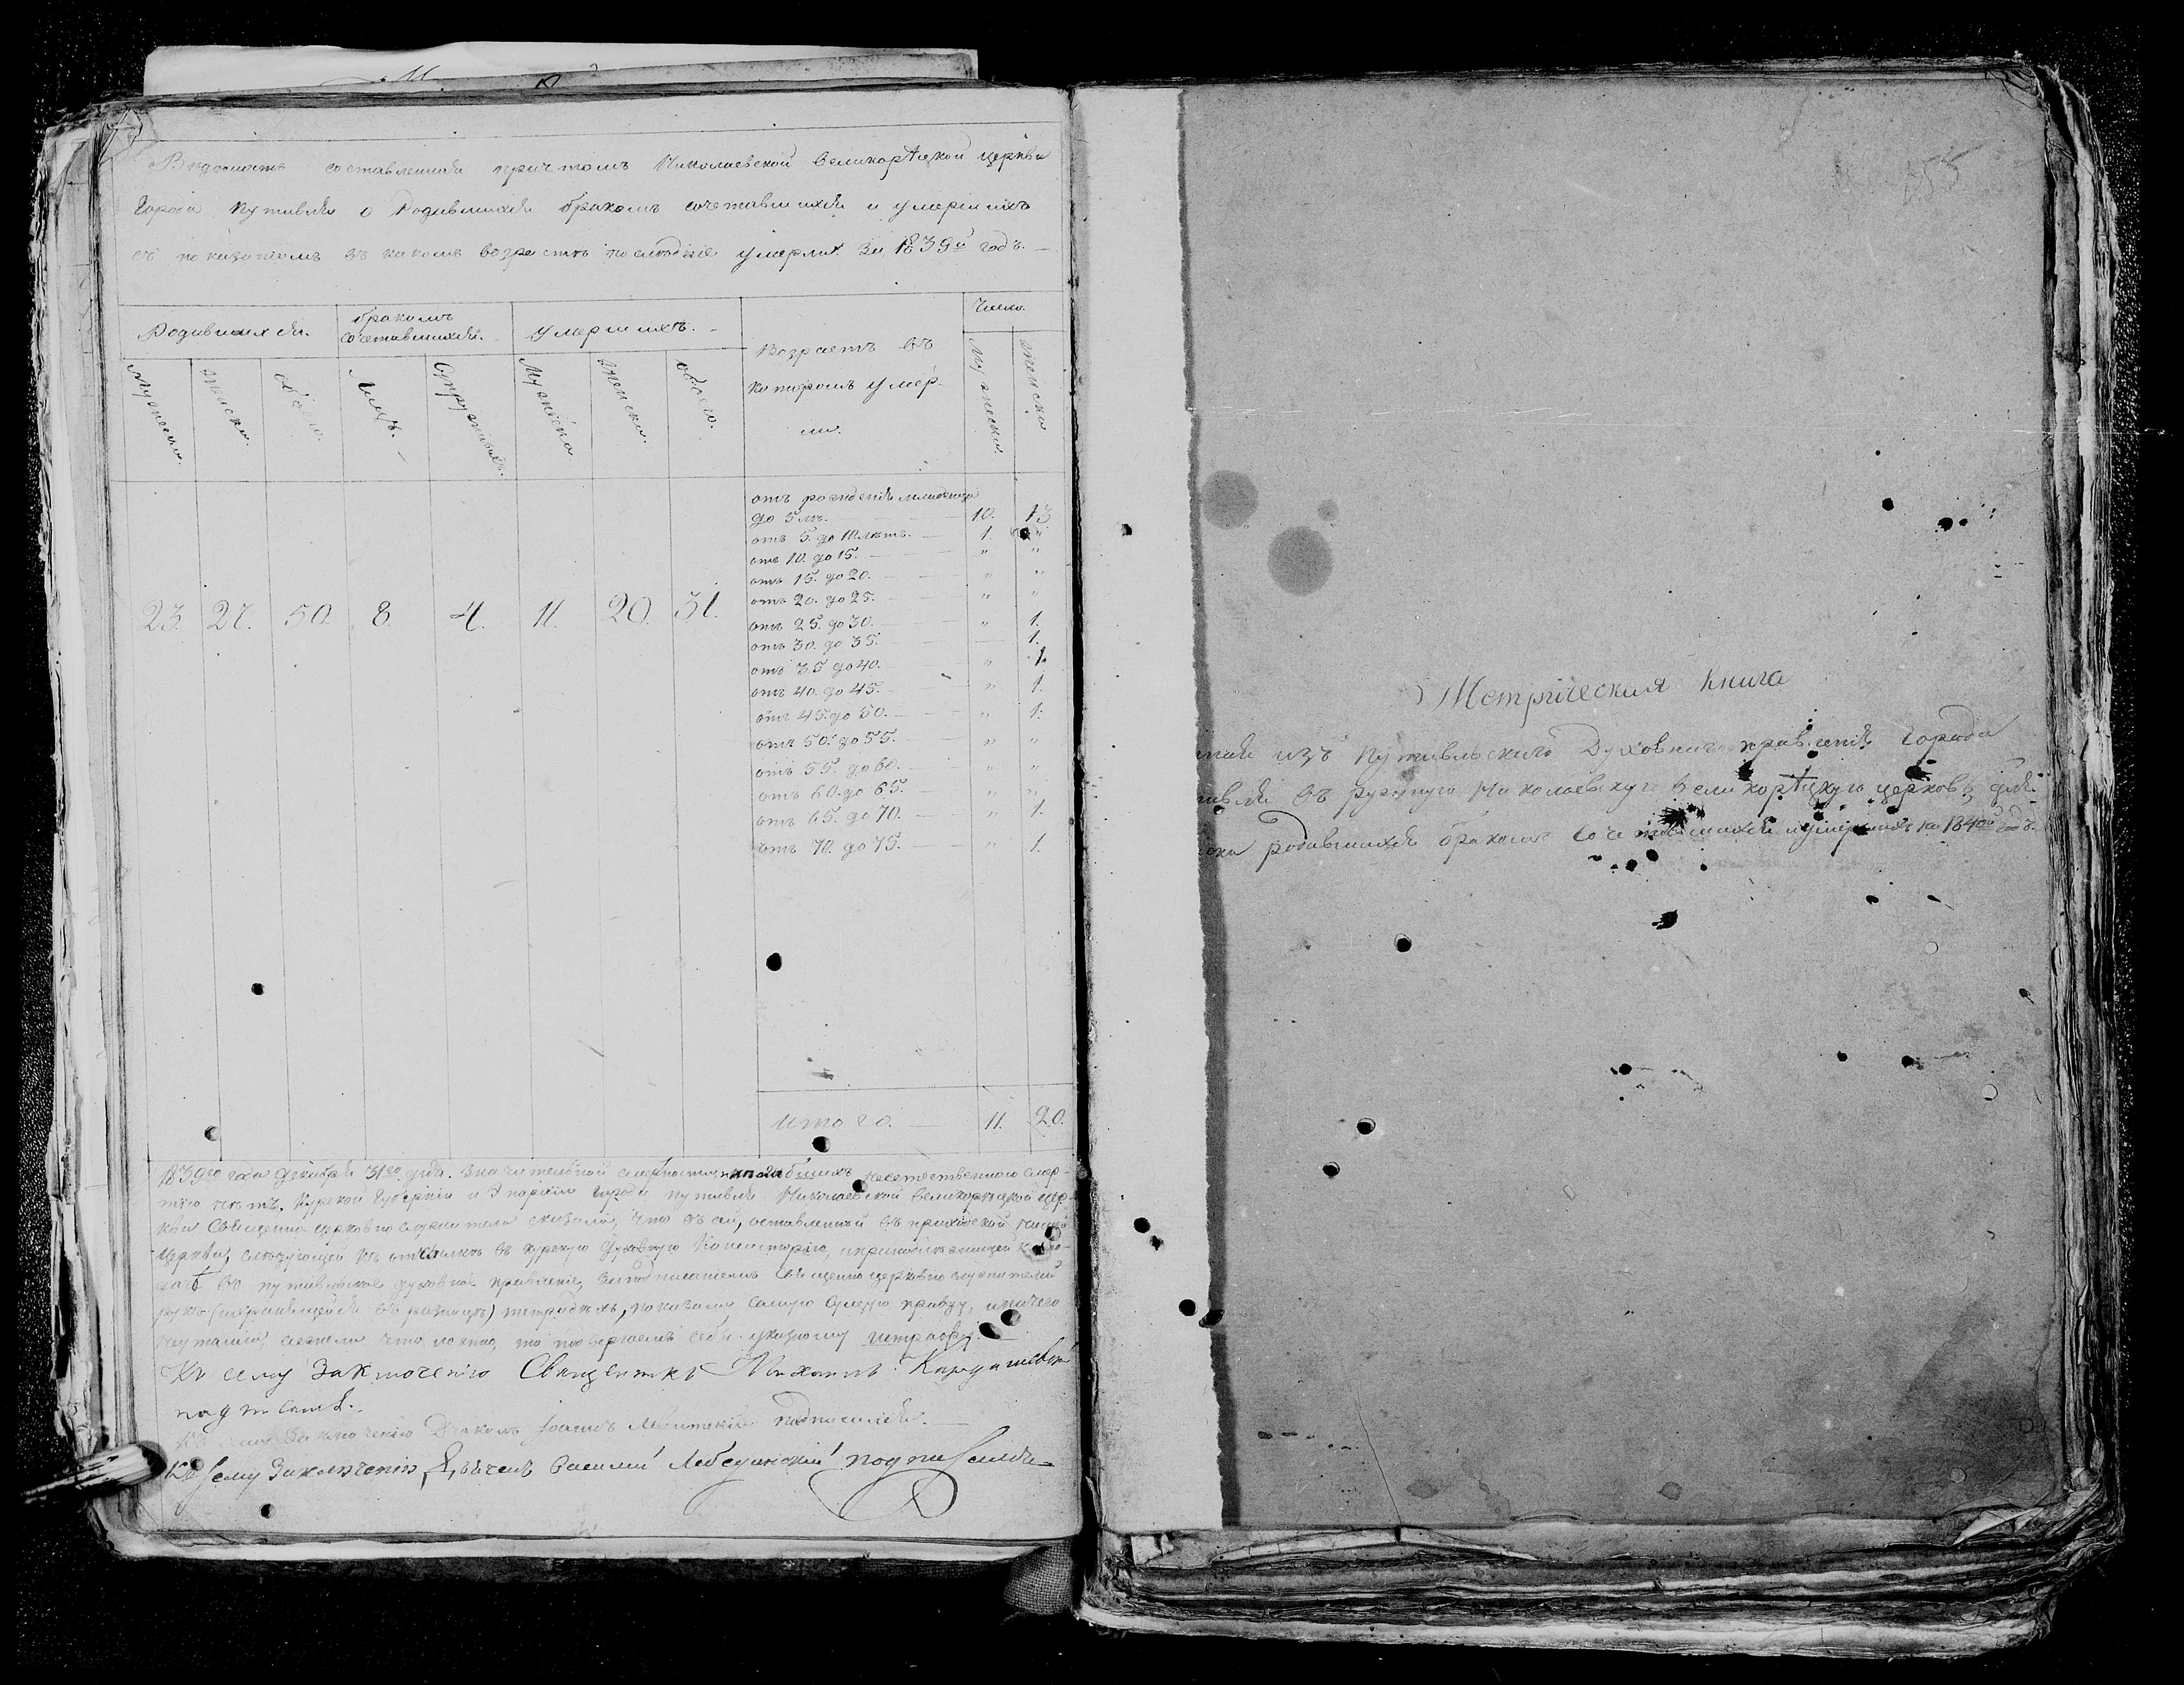 Вѣдомость составленная причтомъ Николаевской великорѣцкой церкви
города Путивля о родившихся бракомъ сочетавшихся и умершихъ
съ показаніемъ въ какомъ возрастѣ послѣдніе умерли За 1839й годъ.
Родившихся. бракомъ сочетавшихся. умершихъ. Возрастъ въ которомъ умерли. Число.
Мужеска. женска. обоего. Лицъ. Супружествъ. Мужеска женска. обоего. Мужеска. женска
23. 27. 50. 8. 4. 11. 20. 31.
отъ рожденія младенца
до 5 лѣ. 10. 13
отъ 5. до 10 лѣтъ. 1. "
отъ 10. до 15. " "
отъ 15. до 20. " "
отъ 20. до 25. " "
отъ 25. до 30. " 1.
отъ 30. до 35. — 1.
отъ 35 до 40. " 1.
отъ 40. до 45. " 1.
отъ 45. до 50. " 1.
отъ 50. до 55. " "
отъ 55. до 60. " "
отъ 60. до 65. " "
отъ 65. до 70. " 1.
отъ 70. до 75. " 1.
итого. 11. 20.
1839го года Декабря 31го дня.
тію нѣтъ. Курской Губерніи и Эпархіи города Путивля Николаевской великорѣцкой цер-
кви Священно церковно служители сказали, что въ сей, оставленной въ приходской нашей
церкви, слѣдующей къ отсылкѣ въ курскую Духовную Консисторію,
въ путивльское духовное правленіе, за подписаніемъ священно церковно служителей
рукъ тетрадяхъ, показали самую сущую правду, и ничего
не утаили, если что ложно, то подвергаемъ себя указному штрафу.
Къ сему Заключенію Священникъ Михаилъ Кардашевъ
подписался.
Къ сему Заключенію Діаконъ Іоаннъ подписался.
Къ сему Заключенію Василій Лебединскій подписался
155
Метрическая Книга
изъ Путивльскаго Духовнаго правленія города
въ Николаевскую великорѣцкую церковь для
родившихся бракомъ сочетавшихся и умершихъ на 1840й годъ.